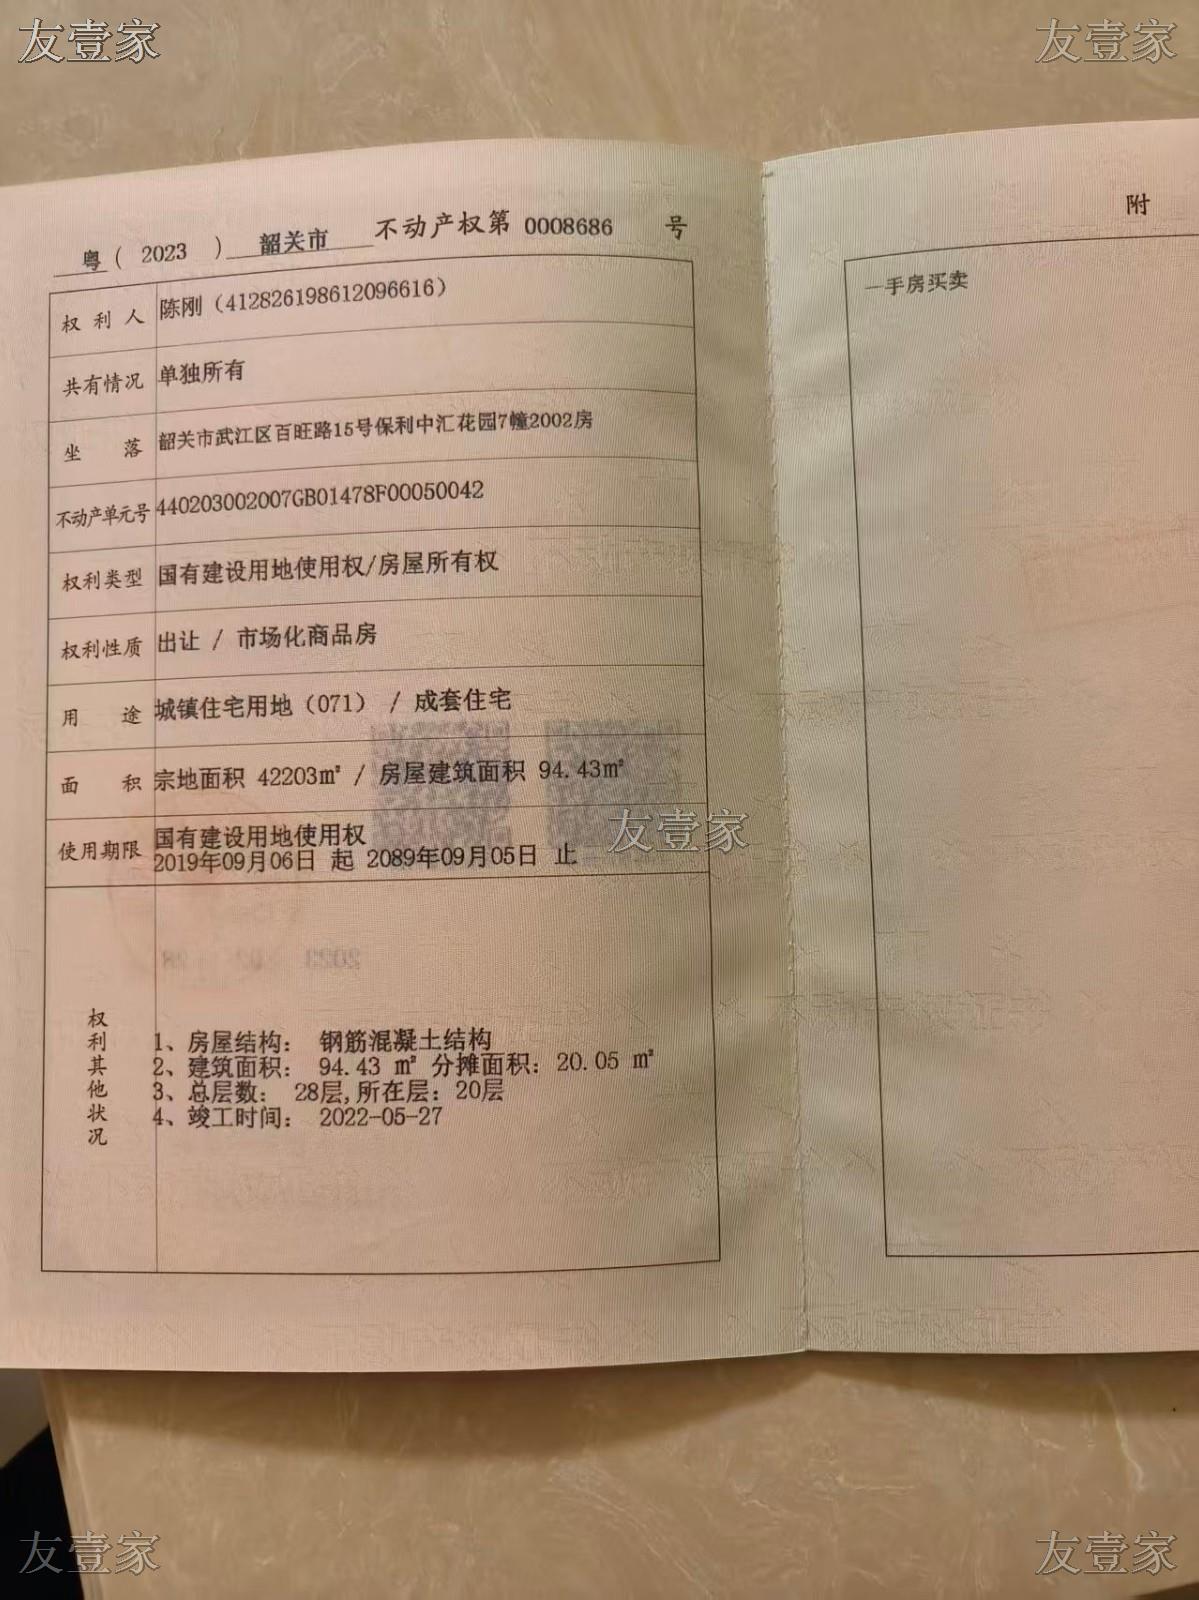 友壹家
友壹家
粤（ 2023 ） 韶关市 不动产权第 0008686 号
权利人 陈刚（412826198612096616）
共有情况 单独所有
坐落 韶关市武江区百旺路15号保利中汇花园7幢2002房
不动产单元号 440203002007GB01478F00050042
权利类型 国有建设用地使用权/房屋所有权
权利性质 出让 / 市场化商品房
用途 城镇住宅用地（071） / 成套住宅
面积 宗地面积 42203㎡ / 房屋建筑面积 94.43㎡
使用期限 国有建设用地使用权
2019年09月06日 起 2089年09月05日 止
友壹家
权利其他状况
1、房屋结构： 钢筋混凝土结构
2、建筑面积： 94.43 ㎡ 分摊面积：20.05 ㎡
3、总层数： 28层,所在层：20层
4、竣工时间： 2022-05-27
附
一手房买卖
友壹家
友壹家